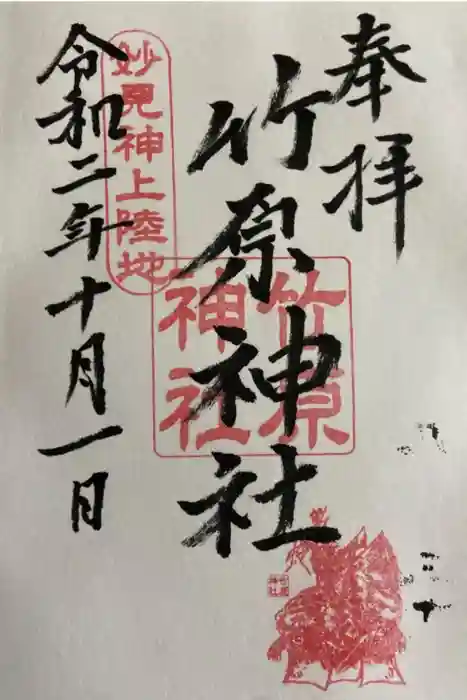 奉拝
竹原神社
竹原神社
妙見神上陸地
令和二年十月一日
竹原神社